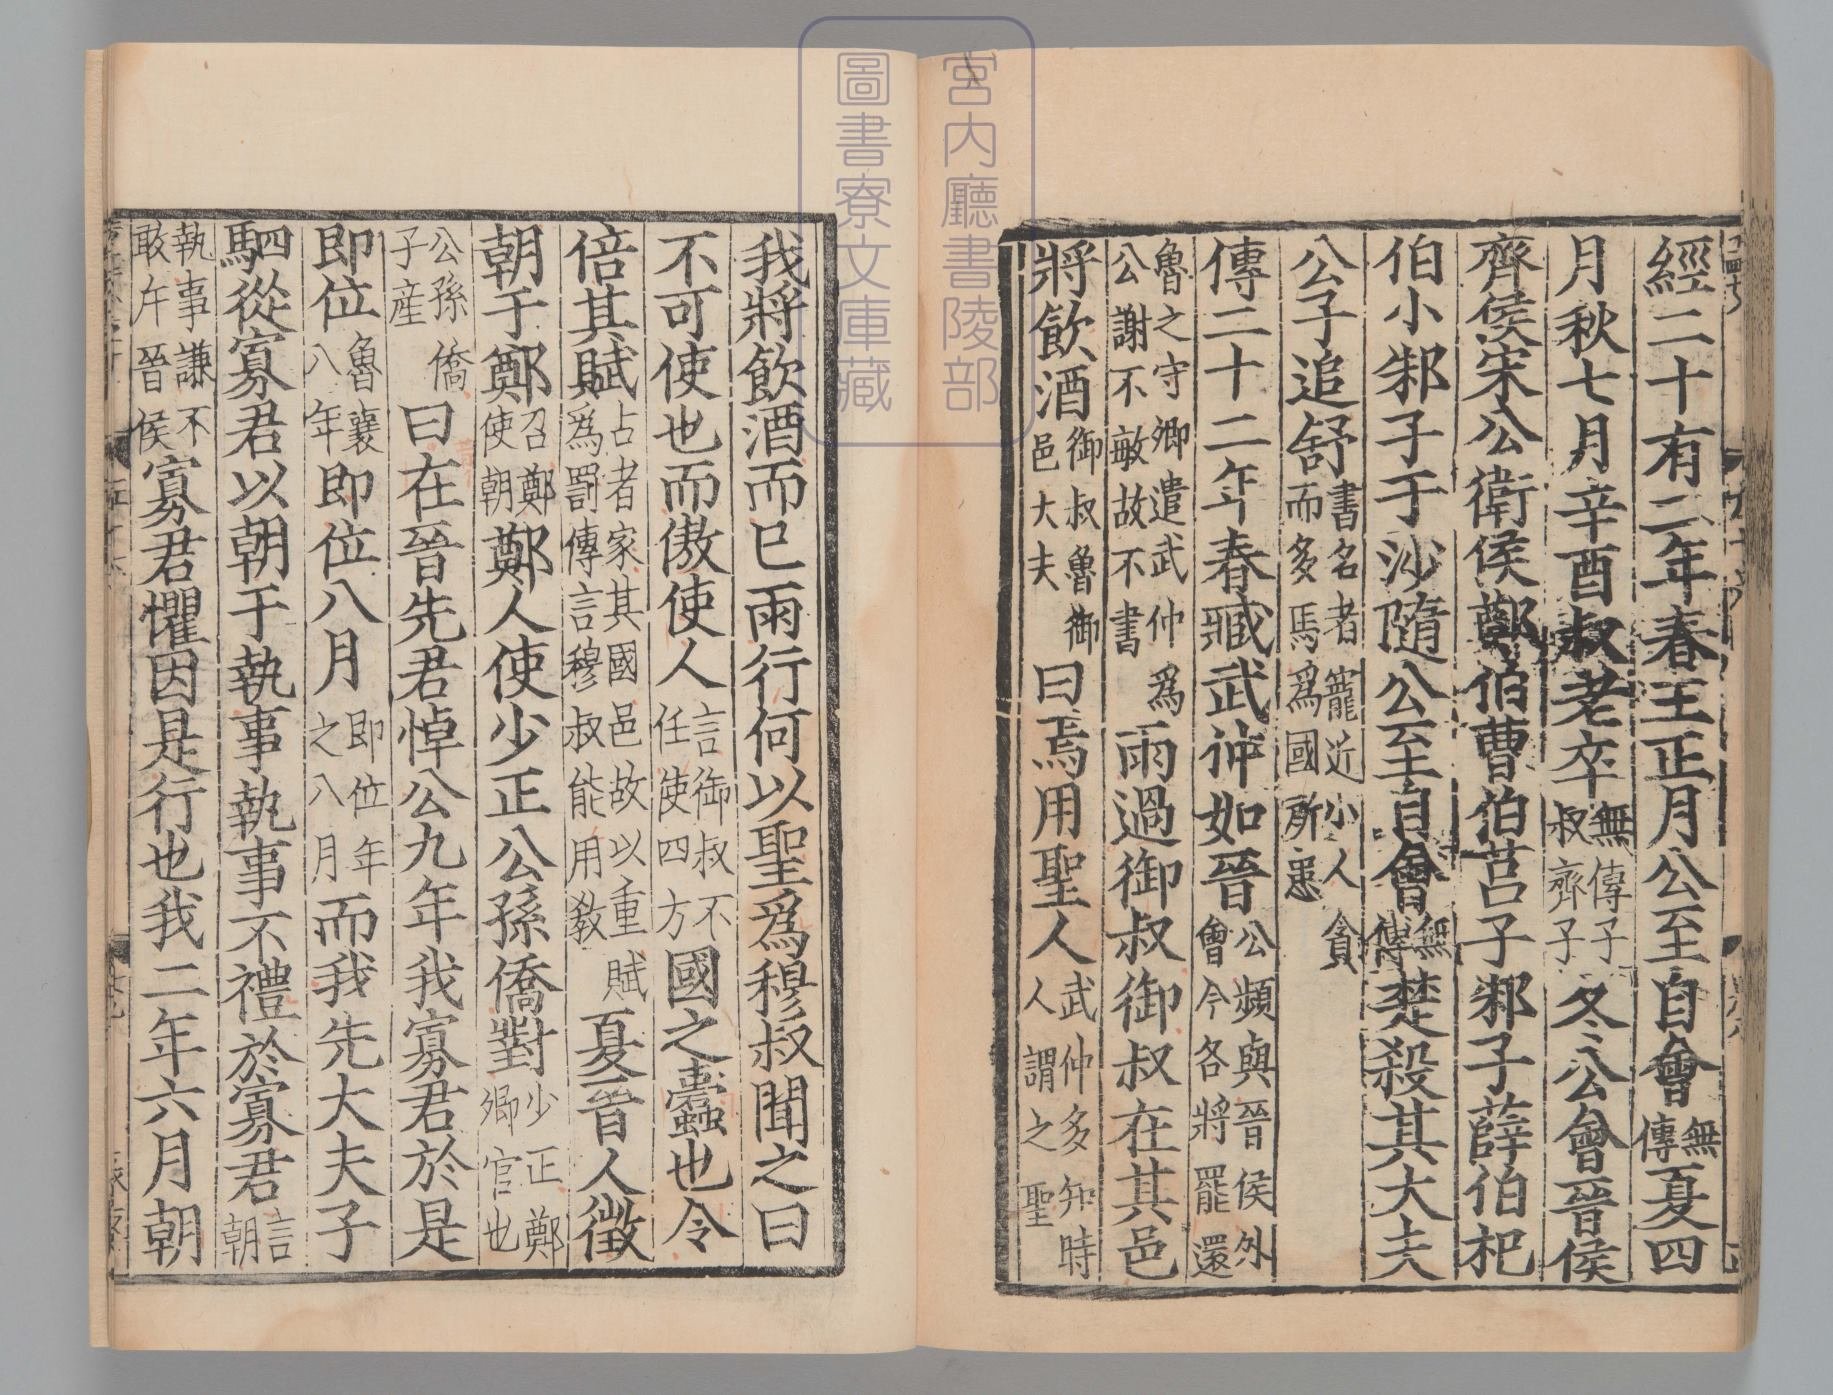 宮內廳書陵部
圖書寮文庫藏
經二十有二年春王正月公至自會無傳夏四
月秋七月辛酉叔老卒無傳子叔齊子冬公會晉侯
齊侯宋公衛侯鄭伯曹伯莒子邾子薛伯杞
伯小邾子于沙隨公至自會無傳楚殺其大夫
公子追舒書名者寵近小人貪而多馬爲國所患
傳二十二年春臧武仲如晉公頻與晉侯外會今各將罷還
魯之守卿遣武仲爲公謝不敏故不書雨過御叔御叔在其邑
將飲酒御叔魯御邑大夫曰焉用聖人武仲多知時人謂之聖
我將飲酒而已雨行何以聖爲穆叔聞之曰
不可使也而傲使人言御叔不任使四方國之蠹也令
倍其賦古者家其國邑故以重賦爲罰傳言穆叔能用教夏晉人徵
朝于鄭召鄭使朝鄭人使少正公孫僑對少正鄭卿官也
公孫僑子產曰在晉先君悼公九年我寡君於是
即位魯襄八年即位八月即位年之八月而我先大夫子
駟從寡君以朝于執事執事不禮於寡君言朝
執事謙不敢斥晉侯寡君懼因是行也我二年六月朝